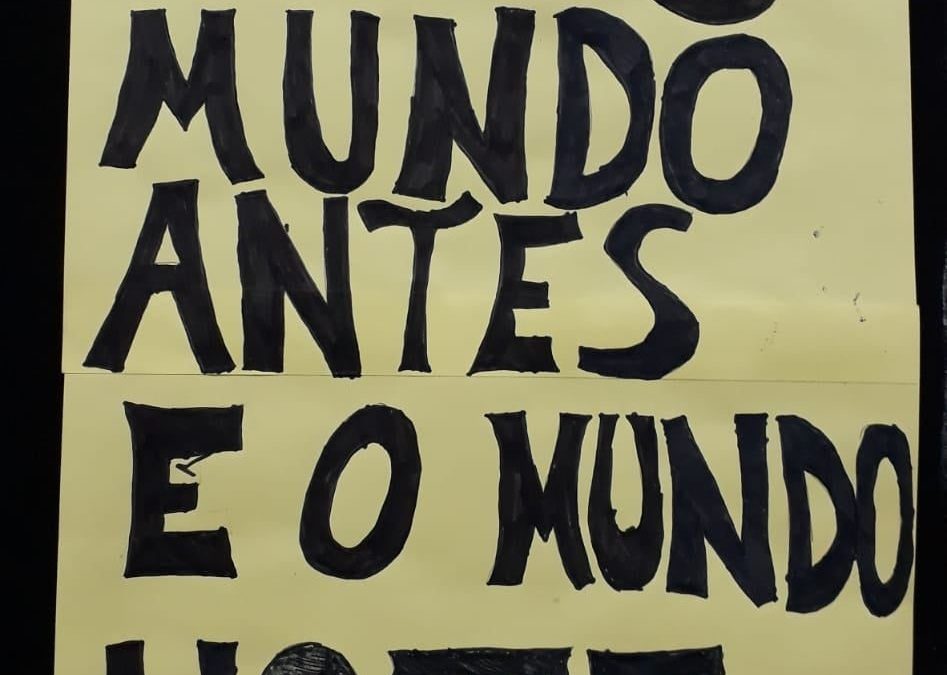 MUNDO
ANTES
E O MUNDO